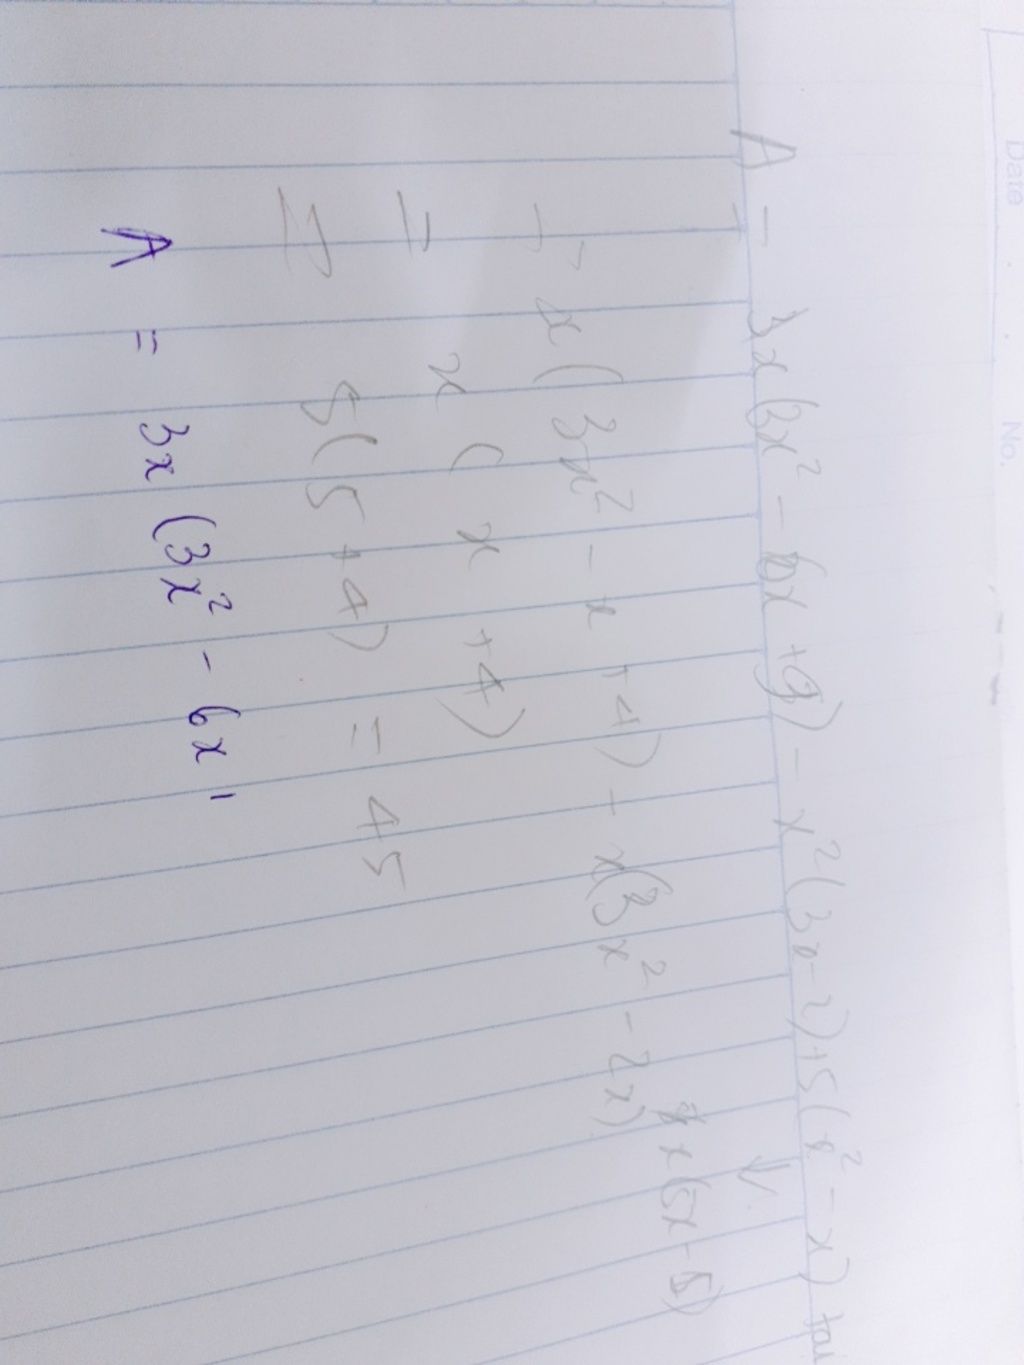 Date
No.
A = 3x(3x² - 6x + 9) - x²(3x - 2) + 5(x² - x) tại
= x(3x² - x + 4) - x(3x² - 2x)
x(5x - 5)
= x(x + 4)
= 5(5 + 4) = 45
A = 3x(3x² - 6x